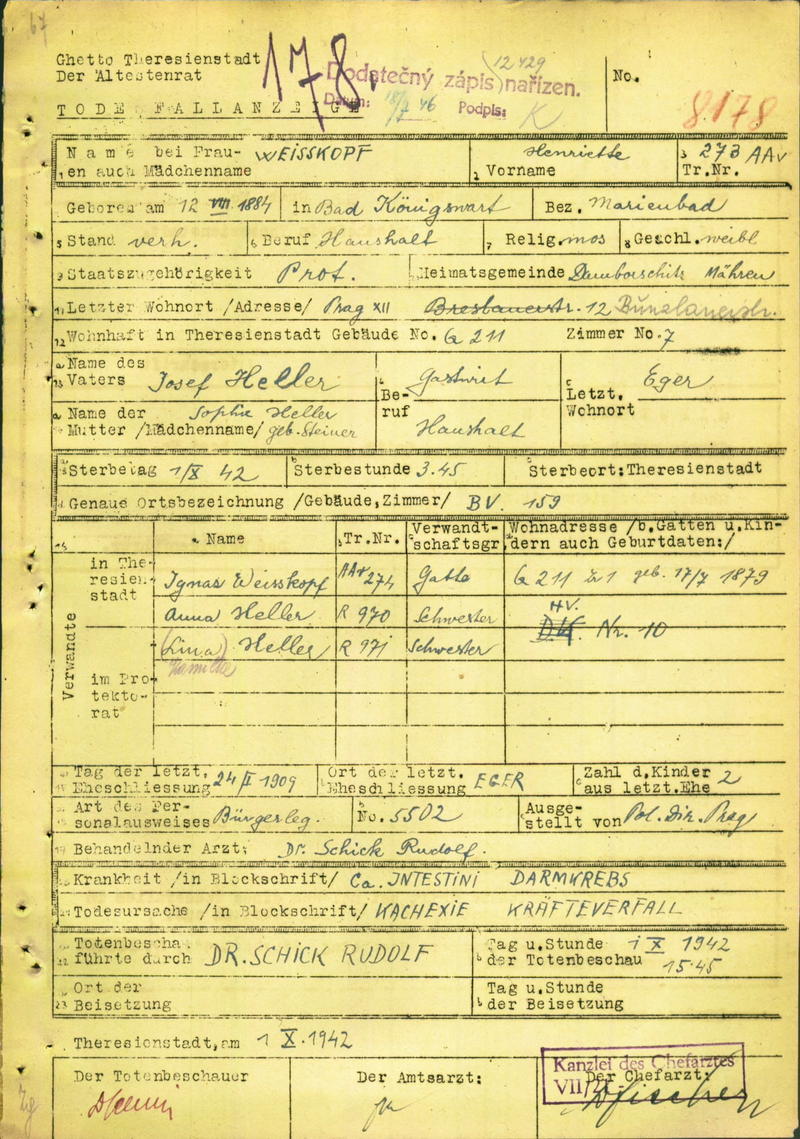 67
Ghetto Theresienstadt
Der Ältestenrat
178.
12429
Dodatečný zápis nařízen.
Datum: 46 Podpis: K
No.
8178
TODESFALLANZEIGE
Name bei Frau- WEISSKOPF Henriette 273 AAv
1 en auch Mädchenname 2 Vorname 3 Tr.Nr.
Geboren am 12 VIII 1884 in Bad Königswart Bez. Marienbad
5 Stand verh. 6 Beruf Haushalt 7 Relig. mos 8 Geschl. weibl
9 Staatszugehörigkeit Prot. Heimatsgemeinde Damborschitz Mähren
11 Letzter Wohnort /Adresse/ Prag XII Breslauerstr. 12 Bunzlauerstr.
12 Wohnhaft in Theresienstadt Gebäude No. G 211 Zimmer No. 7
a Name des
13 Vaters Josef Heller
Be-
ruf
Gastwirt
c Letzt.
Wohnort
Eger
a Name der Sophie Heller
Mutter /Mädchenname/ geb. Steiner
Haushalt
Sterbetag 1/X 42 b Sterbestunde 3.45 c Sterbeort: Theresienstadt
Genaue Ortsbezeichnung /Gebäude,Zimmer/ BV. 159
a Name b Tr.Nr. Verwandt-
schaftsgr. Wohnadresse /b.Gatten u.Kin-
dern auch Geburtdaten:/
Verwandte
in The-
resien-
stadt
Ignas Weisskopf AAv 274 Gatte G 211 Z 1 geb. 17/7 1879
Anna Heller R 970 Schwester HV. Nr. 10
(Lina) Heller R 971 Schwester
Kamilla
im Pro-
tekto-
rat
Tag der letzt.
Eheschliessung 24/II 1909
Ort der letzt.
Eheschliessung EGER
Zahl d.Kinder
aus letzt.Ehe 2
Art des Per-
sonalausweises Bürgerleg.
b No. 5502
Ausge-
stellt von Pol. Dir. Prag
Behandelnder Arzt: Dr. Schick Rudolf.
Krankheit /in Blockschrift/ Ca. INTESTINI DARMKREBS
Todesursache /in Blockschrift/ KACHEXIE KRÄFTEVERFALL
Totenbeschau
führte durch DR. SCHICK RUDOLF
Tag u.Stunde 1 X 1942
b der Totenbeschau 15.45
Ort der
23 Beisetzung
Tag u.Stunde
b der Beisetzung
Theresienstadt,am 1 X. 1942
Der Totenbeschauer
Der Amtsarzt:
Kanzlei des Chefarztes
VII/
Der Chefarzt: